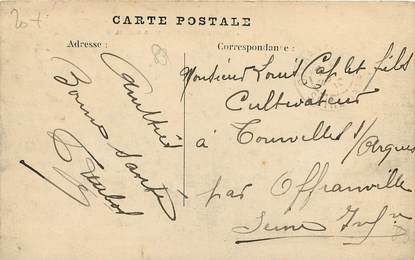 20f
CARTE POSTALE
Adresse :
Correspondance :
Bonne Santé
Monsieur Louis Caplet fils
Cultivateur
à Tourville s/ Arques
par Offranville
Seine Infre